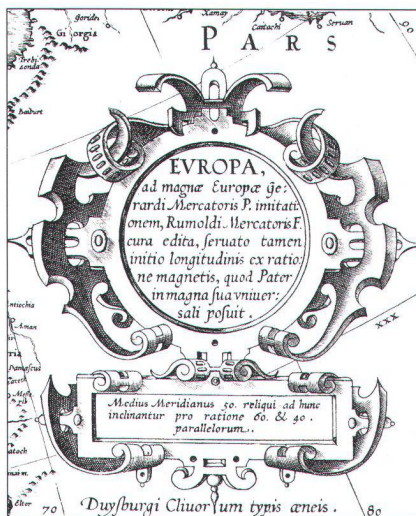 gorides
Giorgia
Xamay
Caitachi
Seruan
90
PARS
Trebi
zonda
Baiburt
EVROPA,
ad magnæ Europæ Ge:
rardi Mercatoris P. imitati
onem, Rumoldi Mercatoris F.
cura edita, seruato tamen
initio longitudinis ex ratio
ne magnetis, quod Pater
in magna sua vniuer:
sali posuit.
ntiochia
Aman
XXX
Medius Meridianus 50. reliqui ad hunc
inclinantur pro ratione 60. & 40.
parallelorum.
Elter
70
Duysburgi Cliuorum typis æneis.
80